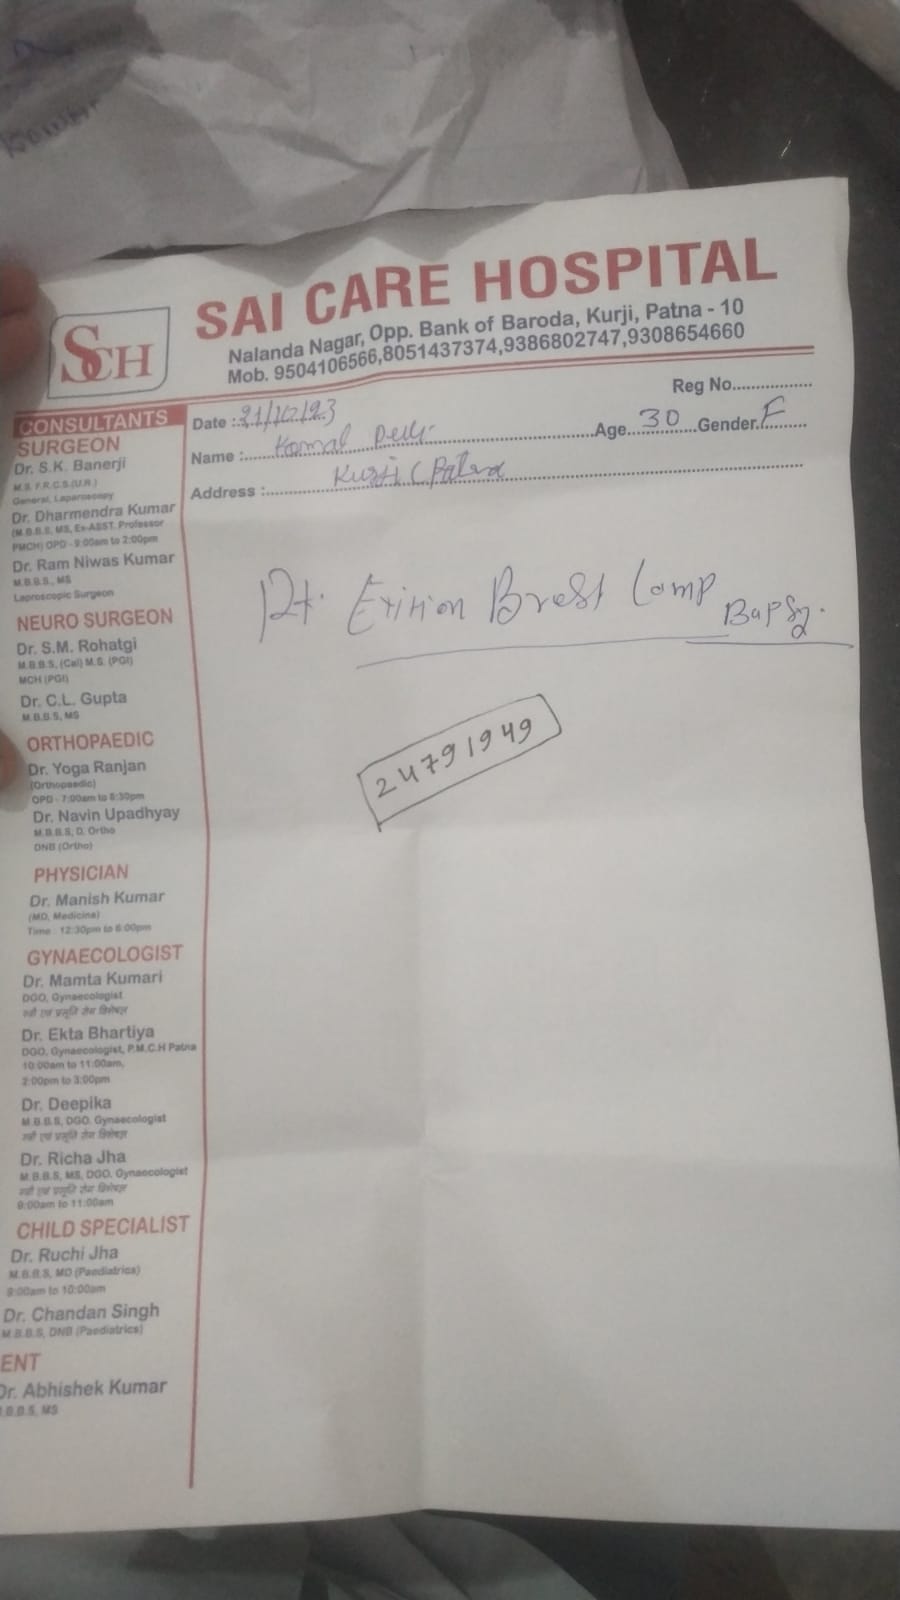 SAI CARE HOSPITAL
SCH
Nalanda Nagar, Opp. Bank of Baroda, Kurji, Patna - 10
Mob. 9504106566,8051437374,9386802747,9308654660
Reg No.................
Date : 21/10/23
Name : Komal Devi Age 30 Gender F
Address : Kurji (Patna
Rt. Exition Brest Lump
24791949
CONSULTANTS
SURGEON
Dr. S.K. Banerji
M.S. F.R.C.S.(U.R.)
General, Laparoscopy
Dr. Dharmendra Kumar
(M.B.B.S, MS, Ex-ASST. Professor
PMCH) OPD - 9:00am to 2:00pm
Dr. Ram Niwas Kumar
M.B.B.S., MS
Laproscopic Surgeon
NEURO SURGEON
Dr. S.M. Rohatgi
M.B.B.S, (Cal) M.S. (PGI)
MCH (PGI)
Dr. C.L. Gupta
M.B.B.S, MS
ORTHOPAEDIC
Dr. Yoga Ranjan
(Orthopaedic)
OPD - 7:00am to 8:30pm
Dr. Navin Upadhyay
M.B.B.S, D. Ortho
DNB (Ortho)
PHYSICIAN
Dr. Manish Kumar
(MD, Medicine)
Time : 12:30pm to 6:00pm
GYNAECOLOGIST
Dr. Mamta Kumari
DGO, Gynaecologist
स्त्री एवं प्रसूति रोग विशेषज्ञ
Dr. Ekta Bhartiya
DGO, Gynaecologist, P.M.C.H Patna
10:00am to 11:00am,
2:00pm to 3:00pm
Dr. Deepika
M.B.B.S, DGO, Gynaecologist
स्त्री एवं प्रसूति रोग विशेषज्ञ
Dr. Richa Jha
M.B.B.S, MS, DGO, Gynaecologist
स्त्री एवं प्रसूति रोग विशेषज्ञ
9:00am to 11:00am
CHILD SPECIALIST
Dr. Ruchi Jha
M.B.B.S, MD (Paediatrics)
9:00am to 10:00am
Dr. Chandan Singh
M.B.B.S, DNB (Paediatrics)
ENT
Dr. Abhishek Kumar
.B.B.S, MS